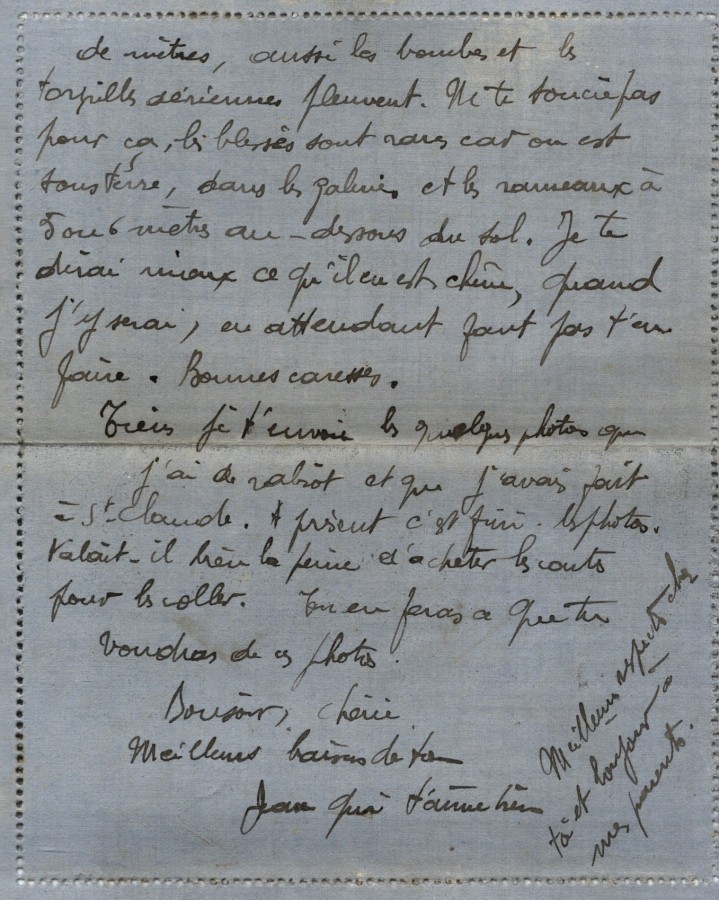 de mètres, aussi les bombes et les
torpilles aériennes pleuvent. Ne te soucie pas
pour ça, les blessés sont rares car on est
sous terre, dans les galeries et les rameaux à
5 ou 6 mètres au-dessous du sol. Je te
dirai mieux ce qu'il en est chérie, quand
j'y serai, en attendant faut pas t'en
faire. Bonnes caresses.
Tiens je t'envoie les quelques photos que
j'ai de rabiot et que j'avais fait
à St-Claude. A présent c'est fini les photos.
Valait-il bien la peine d'acheter les cartes
pour les coller. Tu en feras ce que tu
voudras de ces photos.
Bonsoir, chérie
Meilleurs baisers de ton
Jean qui t'aime bien
Meilleurs respects chez
toi et bonjour à
mes parents.